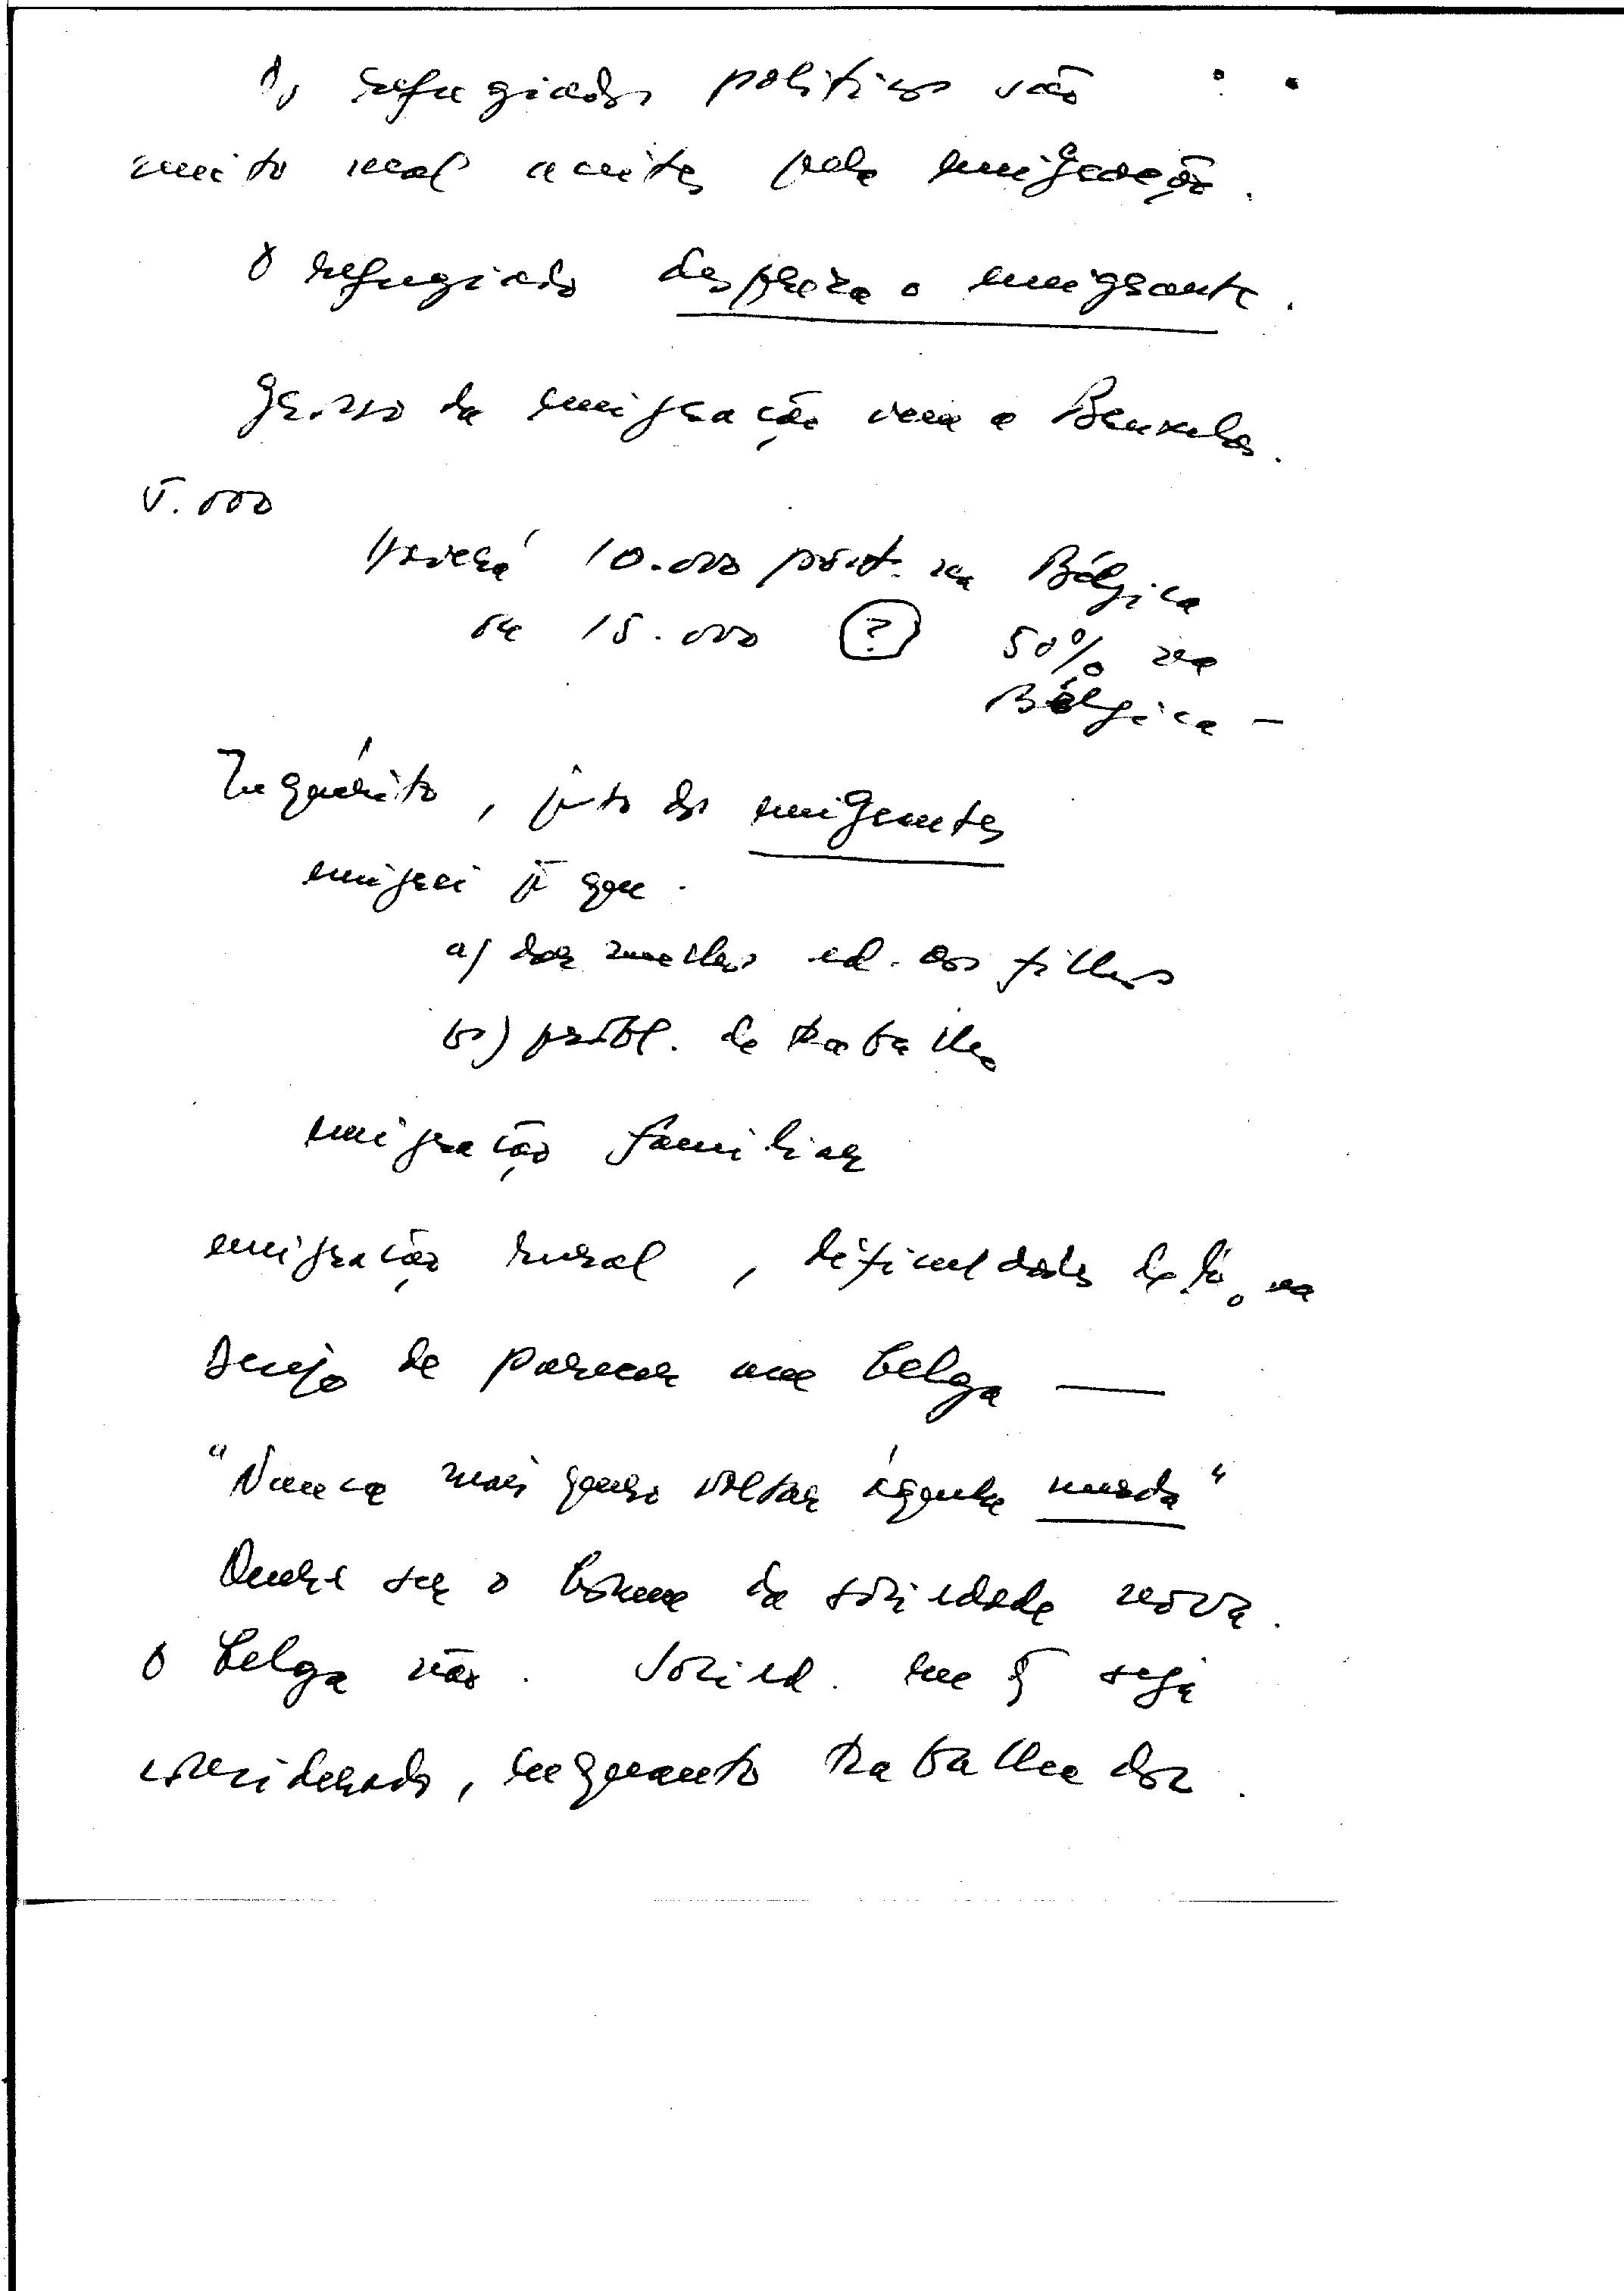 Os refugiados politicos são
muito mal aceites pela emigração.
O refugiado despreza o emigrante.
Grosso da emigração vem a Bruxelas.
5.000
Haverá 10.000 port. na Bélgica
ou 15.000 ? 50% na
Bélgica –
Inquérito, jto dos emigrantes
emigrei p q
a) dar melhor ed. aos filhos
b) probl. de trabalho
emigração familiar
emigração rural, dificuldades
Desejo de parecer um belga —
"Nunca mais quero voltar àquela merda"
Quere ser o homem da sociedade nova.
O belga não. Socied. em q̃ seja
considerado, enquanto trabalhador.